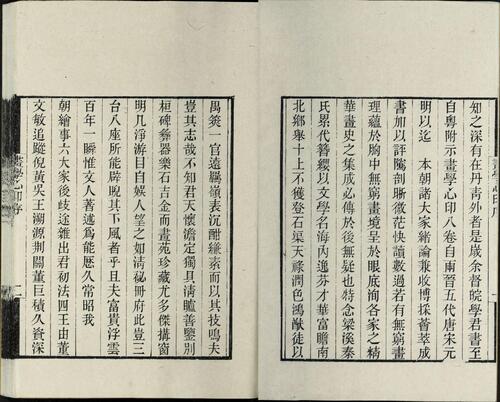 知之深有在丹靑外者是歲余督皖學君書至
自粵附示畫學心印八卷自兩晉五代唐宋元
明以迄　本朝諸大家緒論兼收博採薈萃成
書加以評騭剖晰微茫快讀數過若有無窮畫
理蘊於胸中無窮畫境呈於眼底洵各家之精
華畫史之集成必傳於後無疑也特念梁溪秦
氏累代簪纓以文學名海內逸芬才華富贍南
北鄉舉十上不獲登石渠天祿潤色鴻猷徒以
禺筴一官遠羈嶺表沉酣縑素而以其技鳴夫
豈其志哉不知君天懷澹定獨具淸矑善鑒別
桓碑彝器樂石吉金而畫苑珍藏尤多傑搆窗
明几淨游目自娛人望之如淸祕冊府此豈三
台八座所能睥睨其下風者乎且夫富貴浮雲
百年一瞬惟文人著述爲能歷久常昭我
朝繪事六大家後歧途雜出君初法四王由董
文敏追蹤倪黃吳王溯源荊關董巨積久資深
畫學心印序